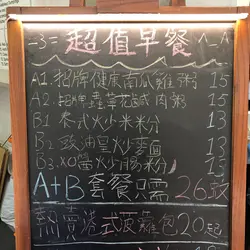 超值早餐
A1.招牌健康南瓜雞粥 15
A2.招牌臻萃花鹹肉粥 15
B1 泰式火少米粉 13
B2 豉油皇火少麵 13
B3.XO醬火少腸粉 15
A+B 套餐只需 26蚊
熱賣港式菠蘿包 20起